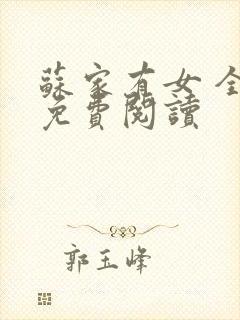 蘇家有女 全
免費閱讀
郭玉峰